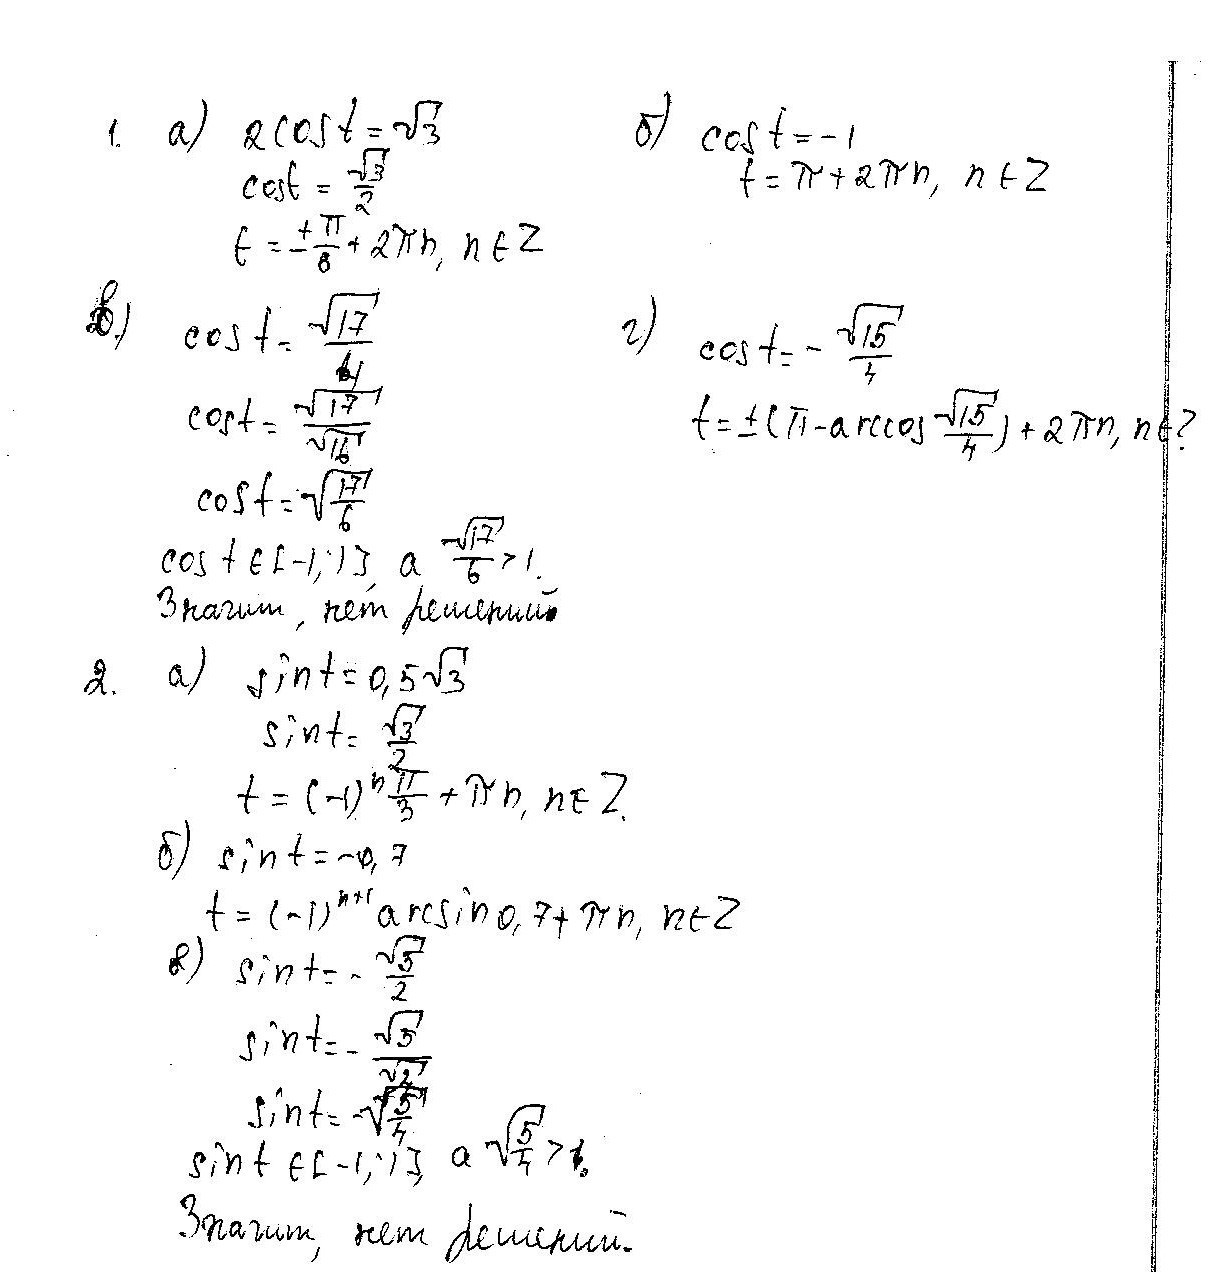 1. а) 2cost = √3
cost = √3/2
t = ±π/6 + 2πn, n ∈ Z
б) cost = -1
t = π + 2πn, n ∈ Z
в) cost = √17/4
cost = √17/√16
cost = √(17/6)
cost ∈ [-1; 1], а √17/6 > 1.
Значит, нет решений.
г) cost = -√15/4
t = ±(π - arccos √15/4) + 2πn, n ∈ Z
2. а) sint = 0,5√3
sint = √3/2
t = (-1)ⁿ π/3 + πn, n ∈ Z.
б) sint = -0,7
t = (-1)ⁿ⁺¹ arcsin 0,7 + πn, n ∈ Z
в) sint = -√5/2
sint = -√5/√2
sint = -√(5/4)
sint ∈ [-1; 1], а √(5/4) > 1.
Значит, нет решений.